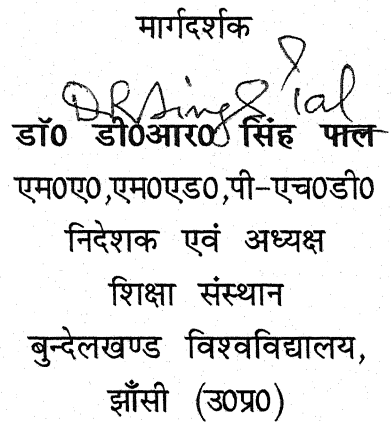 मार्गदर्शक
DR Singh Pal
डॉ0 डी0आर0 सिंह पाल
एम0ए0,एम0एड0,पी-एच0डी0
निदेशक एवं अध्यक्ष
शिक्षा संस्थान
बुन्देलखण्ड विश्वविद्यालय,
झाँसी (उ0प्र0)